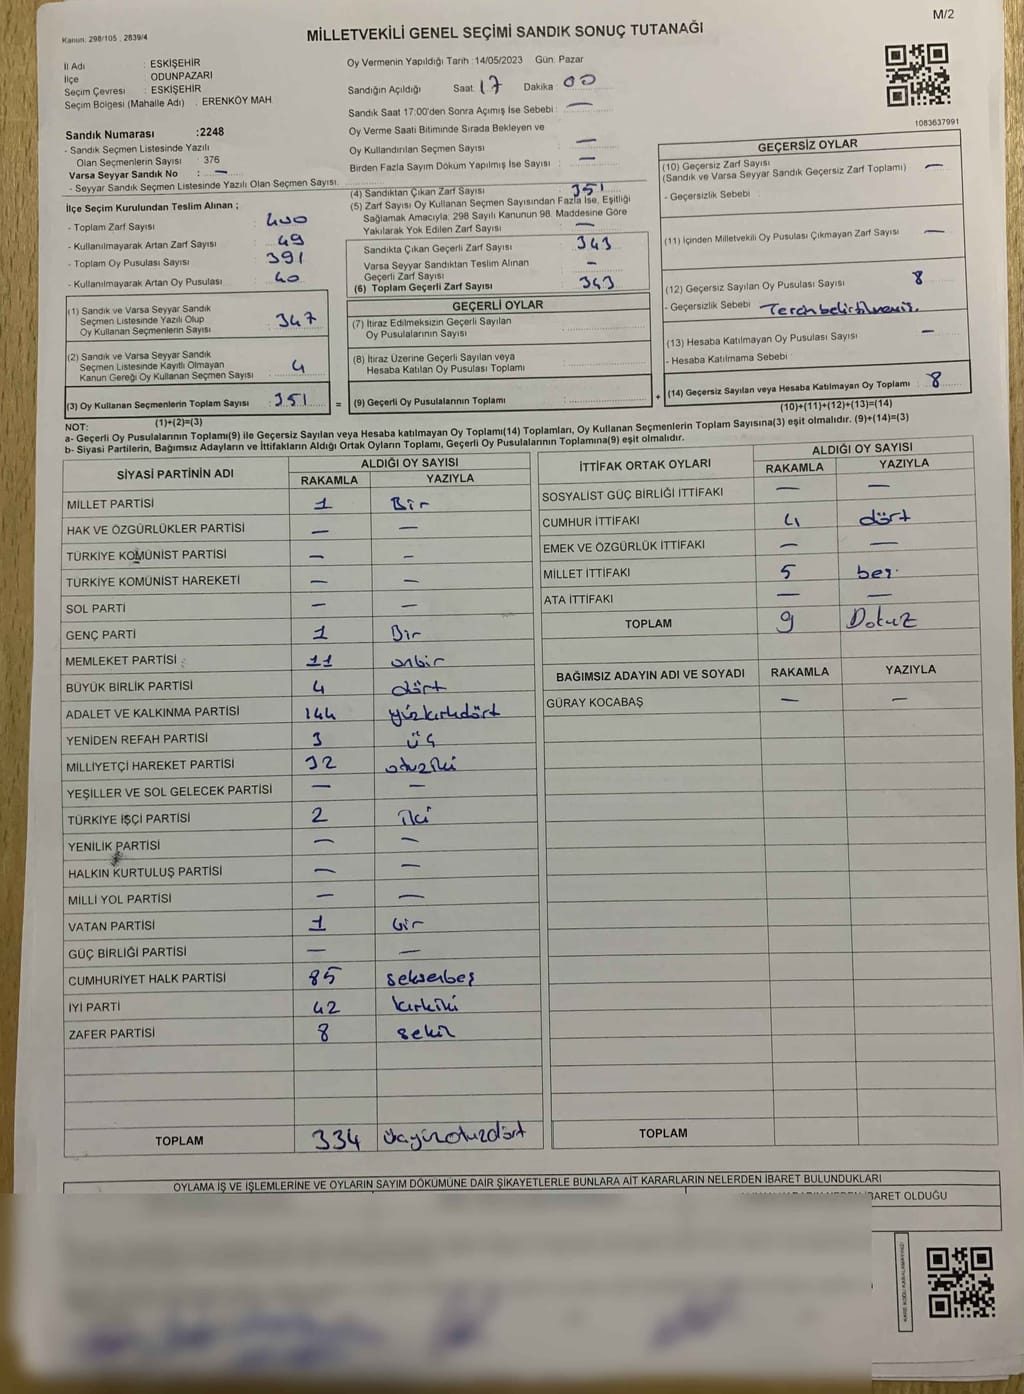 M/2
Kanun: 298/105 , 2839/4
MİLLETVEKİLİ GENEL SEÇİMİ SANDIK SONUÇ TUTANAĞI
İl Adı : ESKİŞEHİR
İlçe : ODUNPAZARI
Seçim Çevresi : ESKİŞEHİR
Seçim Bölgesi (Mahalle Adı) : ERENKÖY MAH.
Sandık Numarası :2248
- Sandık Seçmen Listesinde Yazılı
Olan Seçmenlerin Sayısı : 376
Varsa Seyyar Sandık No : —
- Seyyar Sandık Seçmen Listesinde Yazılı Olan Seçmen Sayısı
İlçe Seçim Kurulundan Teslim Alınan ;
- Toplam Zarf Sayısı : 400
- Kullanılmayarak Artan Zarf Sayısı : 49
- Toplam Oy Pusulası Sayısı : 391
- Kullanılmayarak Artan Oy Pusulası : 40
(1) Sandık ve Varsa Seyyar Sandık
Seçmen Listesinde Yazılı Olup
Oy Kullanan Seçmenlerin Sayısı : 347
(2) Sandık ve Varsa Seyyar Sandık
Seçmen Listesinde Kayıtlı Olmayan
Kanun Gereği Oy Kullanan Seçmen Sayısı : 4
(3) Oy Kullanan Seçmenlerin Toplam Sayısı : 351
(1)+(2)=(3)
Oy Vermenin Yapıldığı Tarih :14/05/2023 Gün: Pazar
Sandığın Açıldığı Saat: 17 Dakika 00
Sandık Saat 17:00'den Sonra Açımış İse Sebebi : —
Oy Verme Saati Bitiminde Sırada Bekleyen ve
Oy Kullandırılan Seçmen Sayısı : —
Birden Fazla Sayım Döküm Yapılmış İse Sayısı : —
(4) Sandıktan Çıkan Zarf Sayısı : 351
(5) Zarf Sayısı Oy Kullanan Seçmen Sayısından Fazla İse, Eşitliği
Sağlamak Amacıyla, 298 Sayılı Kanunun 98. Maddesine Göre
Yakılarak Yok Edilen Zarf Sayısı : —
Sandıkta Çıkan Geçerli Zarf Sayısı : 343
Varsa Seyyar Sandıktan Teslim Alınan
Geçerli Zarf Sayısı : —
(6) Toplam Geçerli Zarf Sayısı : 343
GEÇERLİ OYLAR
(7) İtiraz Edilmeksizin Geçerli Sayılan
Oy Pusulalarının Sayısı :
(8) İtiraz Üzerine Geçerli Sayılan veya
Hesaba Katılan Oy Pusulası Toplamı :
= (9) Geçerli Oy Pusulalarının Toplamı :
1083637991
GEÇERSİZ OYLAR
(10) Geçersiz Zarf Sayısı —
(Sandık ve Varsa Seyyar Sandık Geçersiz Zarf Toplamı)
- Geçersizlik Sebebi :
(11) İçinden Milletvekili Oy Pusulası Çıkmayan Zarf Sayısı —
(12) Geçersiz Sayılan Oy Pusulası Sayısı : 8
- Geçersizlik Sebebi Tercih belirtilmemiş.
(13) Hesaba Katılmayan Oy Pusulası Sayısı : —
- Hesaba Katılmama Sebebi :
+ (14) Geçersiz Sayılan veya Hesaba Katılmayan Oy Toplamı : 8
(10)+(11)+(12)+(13)=(14)
NOT:
a- Geçerli Oy Pusulalarının Toplamı(9) ile Geçersiz Sayılan veya Hesaba Katılmayan Oy Toplamı(14) Toplamları, Oy Kullanan Seçmenlerin Toplam Sayısına(3) eşit olmalıdır. (9)+(14)=(3)
b- Siyasi Partilerin, Bağımsız Adayların ve İttifakların Aldığı Ortak Oyların Toplamı, Geçerli Oy Pusulalarının Toplamına(9) eşit olmalıdır.
SİYASİ PARTİNİN ADI ALDIĞI OY SAYISI
RAKAMLA YAZIYLA
MİLLET PARTİSİ 1 Bir
HAK VE ÖZGÜRLÜKLER PARTİSİ — —
TÜRKİYE KOMÜNİST PARTİSİ — —
TÜRKİYE KOMÜNİST HAREKETİ — —
SOL PARTİ — —
GENÇ PARTİ 1 Bir
MEMLEKET PARTİSİ 11 onbir
BÜYÜK BİRLİK PARTİSİ 4 dört
ADALET VE KALKINMA PARTİSİ 144 yüzkırkdört
YENİDEN REFAH PARTİSİ 3 üç
MİLLİYETÇİ HAREKET PARTİSİ 32 otuziki
YEŞİLLER VE SOL GELECEK PARTİSİ — —
TÜRKİYE İŞÇİ PARTİSİ 2 iki
YENİLİK PARTİSİ — —
HALKIN KURTULUŞ PARTİSİ — —
MİLLİ YOL PARTİSİ — —
VATAN PARTİSİ 1 bir
GÜÇ BİRLİĞİ PARTİSİ — —
CUMHURİYET HALK PARTİSİ 85 seksenbeş
İYİ PARTİ 42 kırkiki
ZAFER PARTİSİ 8 sekiz
TOPLAM 334 üçyüzotuzdört
İTTİFAK ORTAK OYLARI ALDIĞI OY SAYISI
RAKAMLA YAZIYLA
SOSYALİST GÜÇ BİRLİĞİ İTTİFAKI — —
CUMHUR İTTİFAKI 4 dört
EMEK VE ÖZGÜRLÜK İTTİFAKI — —
MİLLET İTTİFAKI 5 beş.
ATA İTTİFAKI — —
TOPLAM 9 Dokuz
BAĞIMSIZ ADAYIN ADI VE SOYADI RAKAMLA YAZIYLA
GÜRAY KOCABAŞ — —
TOPLAM
OYLAMA İŞ VE İŞLEMLERİNE VE OYLARIN SAYIM DÖKÜMÜNE DAİR ŞİKAYETLERLE BUNLARA AİT KARARLARIN NELERDEN İBARET BULUNDUKLARI
OLDUĞU